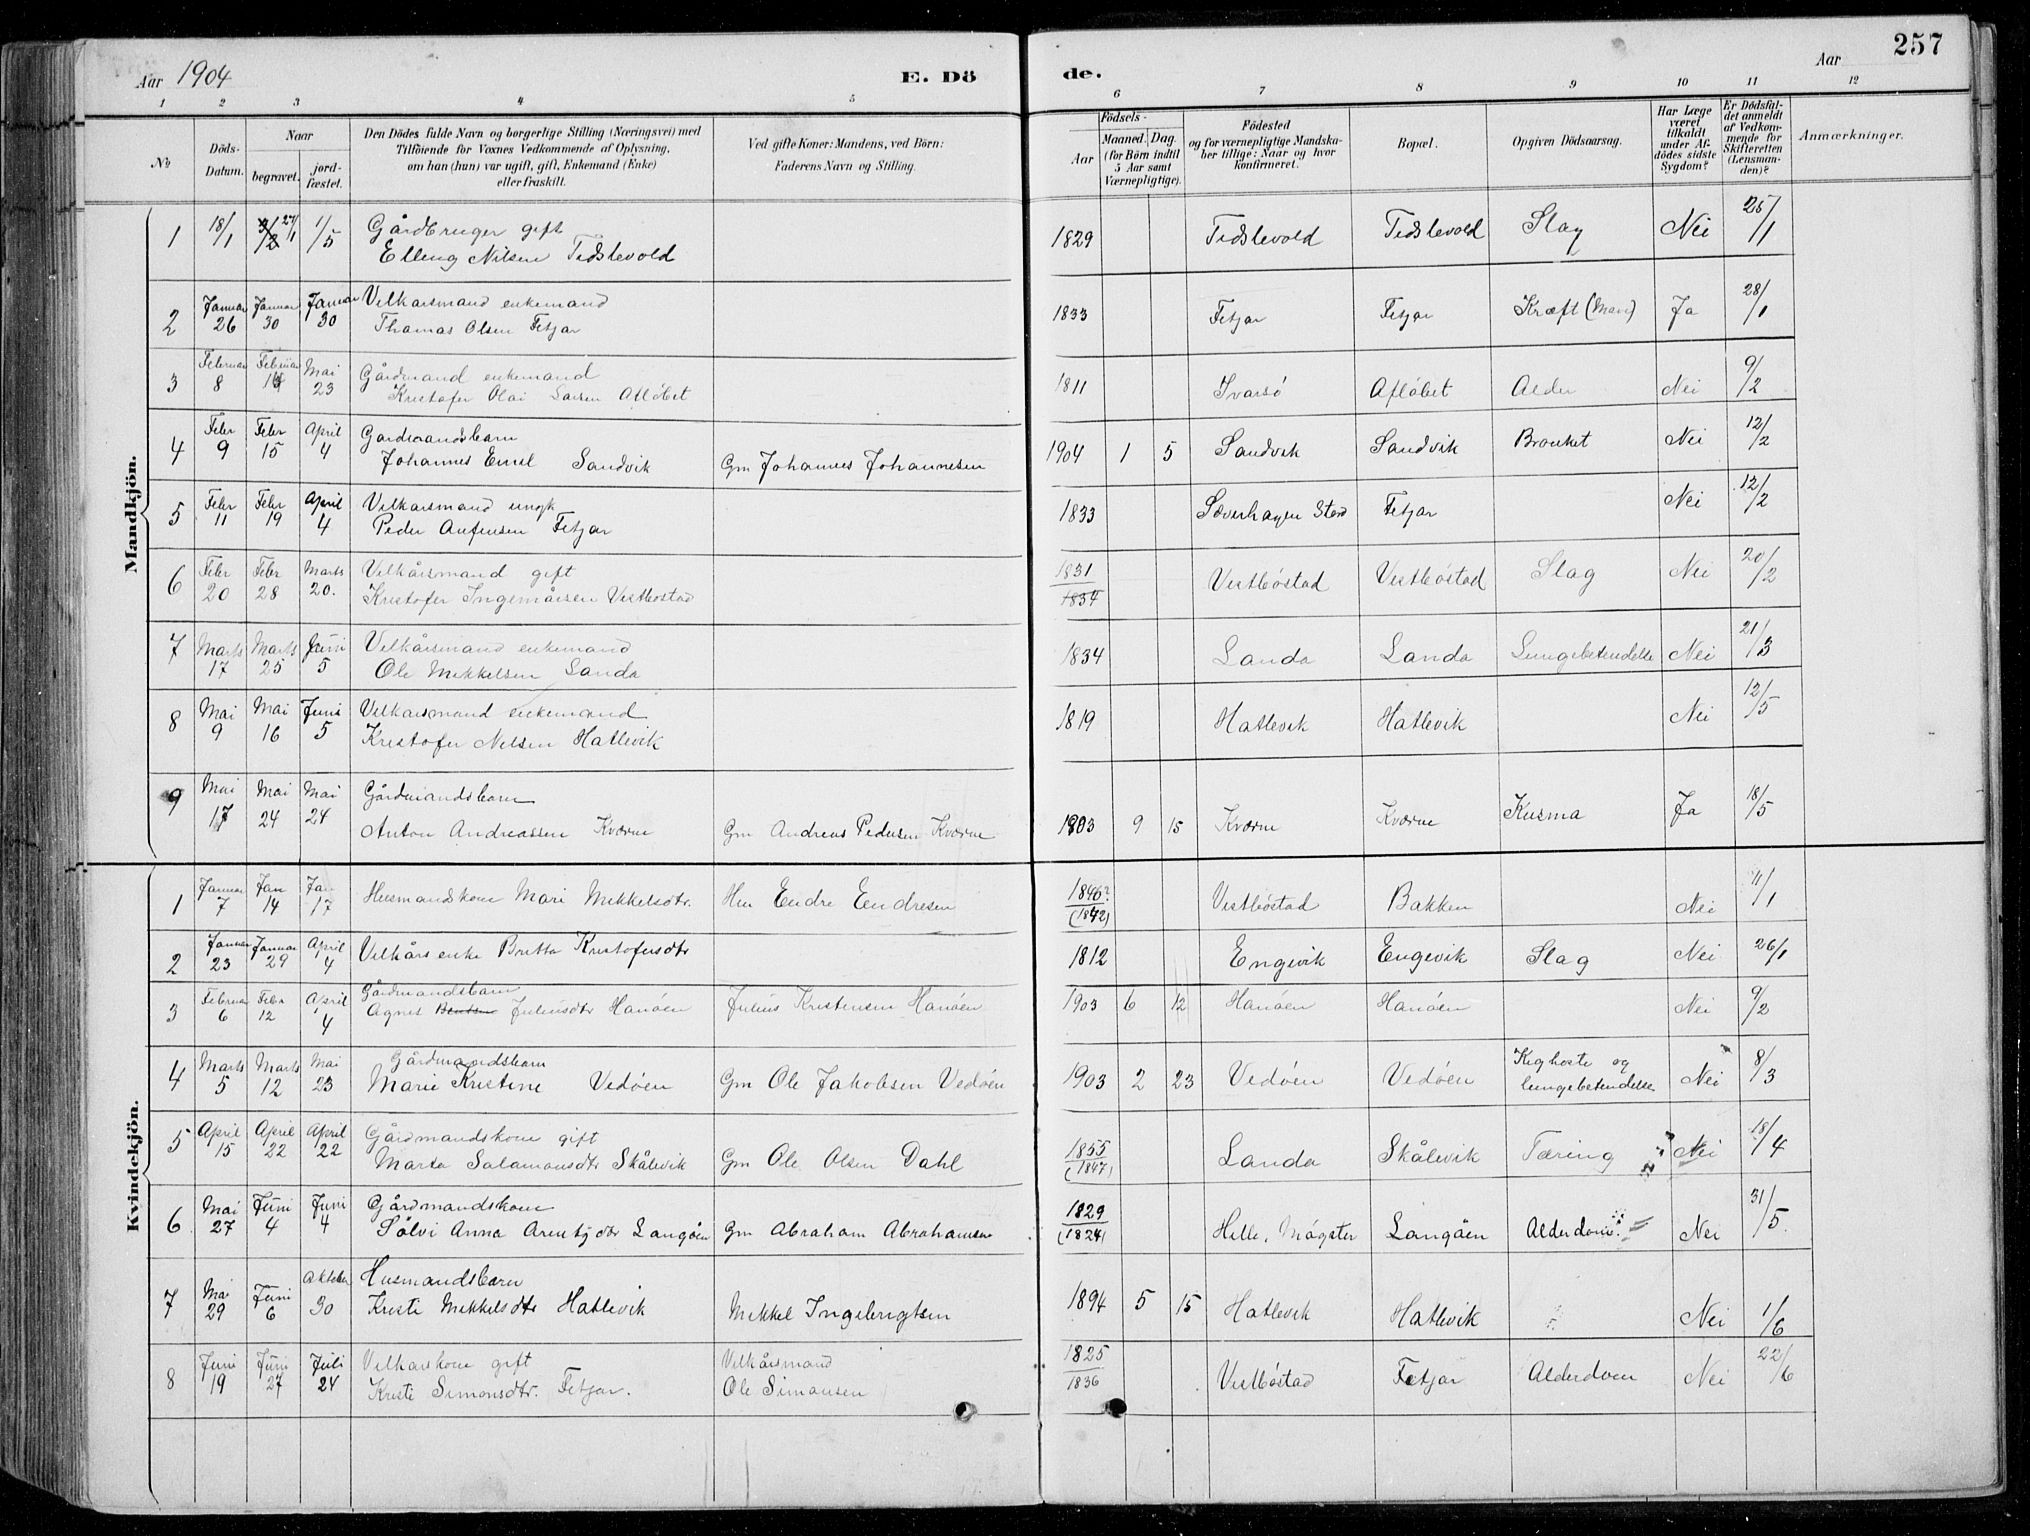 257
Aar 1904
E. Dö
de.
Aar
1 2 3 4 5 6 7 8 9 10 11 12
No
Döds-
Datum.
Naar
begravet.
jord-
fæstet.
Den Dödes fulde Navn og borgerlige Stilling (Næringsvei) med
Tilföiende for Voxnes Vedkommende af Oplysning,
om han (hun) var ugift, gift, Enkemand (Enke)
eller fraskilt.
Ved gifte Koner: Mandens, ved Börn:
Faderens Navn og Stilling.
Födsels-
Aar
Maaned. Dag.
(for Börn indtil
5 Aar samt
Værnepligtige).
Födested
og for værnepligtige Mandska-
ber tillige: Naar og hvor
konfirmeret.
Bopæl.
Opgiven Dödsaarsag.
Har Læge
været
tilkaldt
under Af-
dödes sidste
Sygdom?
Er Dödsfal-
det anmeldt
af Vedkom-
mende for
Skifteretten
(Lensman-
den)?
Anmærkninger.
Mandkjön.
1 18/1 3/2 27/1 1/5 Gårdbruger gift
Elling Nilsen Tidslevold 1829 Tidslevold Tidslevold Slag Nei 25/1
2 Januar 26 Januar 30 Januar 30 Velkarsmand enkemand
Thomas Olsen Fitjar 1833 Fitjar Fitjar Kræft (Mave) Ja 28/1
3 Februar 8 Februar 14 Mai 23 Gårdmand enkemand
Kristofer Olai Larsen Afløbet 1811 Ivarsø Afløbet Alder Nei 9/2
4 Febr 9 Febr 15 April 4 Gardmandsbarn
Johannes Emil Sandvik Gm Johannes Johannesen 1904 1 5 Sandvik Sandvik Bronket Nei 12/2
5 Febr 11 Febr 19 April 4 Velkarsmand ungk
Peder Anfinsen Fitjar 1833 Sæverhagen Stord Fitjar Nei 12/2
6 Febr 20 Febr 28 Marts 20. Velkårsmand gift
Kristofer Ingemårsen Vestbøstad 1831/1834 Vestbøstad Vestbøstad Slag Nei 20/2
7 Marts 17 Marts 25 Juni 5 Velkårsmand enkemand
Ole Mikkelsen Landa 1834 Landa Landa Lungebetendelse Nei 21/3
8 Mai 9 Mai 16 Juni 5 Velkarsmand enkemand
Kristofer Nilsen Hatlevik 1819 Hatlevik Hatlevik Nei 12/5
9 Mai 17 Mai 24 Mai 24 Gårdmandsbarn
Anton Andreassen Kværne Gm Andreas Pedersen Kværne 1903 9 15 Kværne Kværne Kusma Ja 18/5
Kvindekjön.
1 Januar 7 Jan 14 Jan 17 Husmandskone Mari Mikkelsdtr. Hm Endre Endresen 1846?/(1842) Vestbøstad Bakken Nei 11/1
2 Januar 23 Januar 29 April 4 Velkårs enke Britta Kristofersdtr 1812 Engevik Engevik Slag Nei 26/1
3 Februar 6 Febr 12 April 4 Gårdmandsbarn
Agnes Juliusdtr Hanøen Julius Kristensen Hanøen 1903 6 12 Hanøen Hanøen Nei 9/2
4 Marts 5 Marts 12 Mai 23 Gårdmandsbarn
Marie Kristine Vedøen Gm Ole Jakobsen Vedøen 1903 2 23 Vedøen Vedøen Kighoste og
lungebetendelse Nei 8/3
5 April 15 April 22 April 22 Gårdmandskone gift
Marta Salamonsdtr Skålevik Gm Ole Olsen Dahl 1855/(1847) Landa Skålevik Tæring Nei 18/4
6 Mai 27 Juni 4 Juni 4 Gårdmandskone
Sølvi Anna Arentsdtr Langøen Gm Abraham Abrahamsen 1829/(1824) Helle, Møgster Langøen Alderdom. Nei 31/5
7 Mai 29 Juni 6 Oktober 30 Husmandsbarn
Kristi Mikkelsdtr Hatlevik Mikkel Ingebrigtsen 1894 5 15 Hatlevik Hatlevik Nei 1/6
8 Juni 19 Juni 27 Juli 24 Velkarskone gift
Kristi Simonsdtr. Fitjar. Velkårsmand
Ole Simonsen 1825/1836 Vestbøstad Fitjar Alderdom Nei 22/6